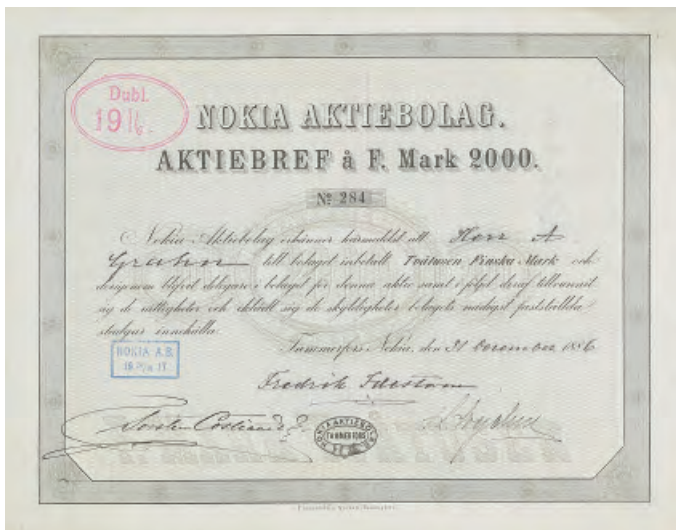 Dubl.
19
NOKIA AKTIEBOLAG.
AKTIEBREF à F. Mark 2000.
Nº 284
Nokia Aktiebolag erkänner härmedelst att Herr A
Grahn till bolaget inbetalt Tvåtusen Finska Mark och
derigenom blifvit delegare i bolaget för denna aktie samt i följd deraf tillkommit
sig de rättigheter och åtklädt sig de skyldigheter bolagets nådigst fastställda
stadgar innehålla.
Tammerfors Nokia, den 31 December 1886
NOKIA A.B.
Fredrik Idestam
NOKIA AKTIEBOLAG
TAMMERFORS